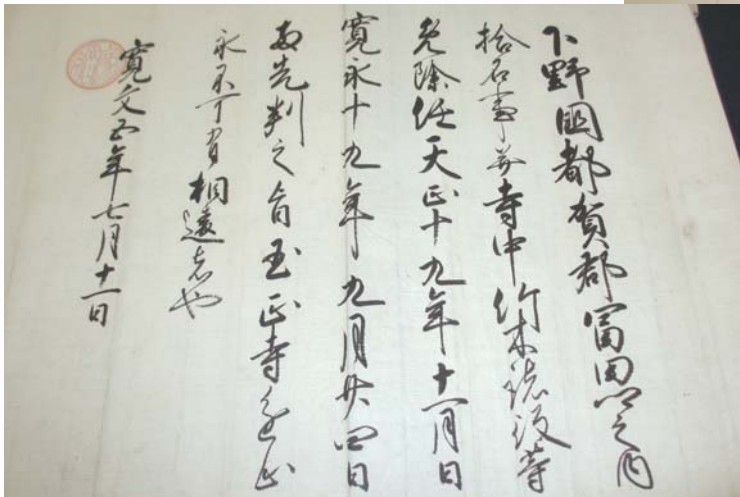 下野國都賀郡冨田郷之内
拾石事并寺中竹木諸役等
免除任天正十九年十一月日
寛永十九年九月廿四日
両先判之旨玉正寺進止
永不可有相違者也
寛文五年七月十一日